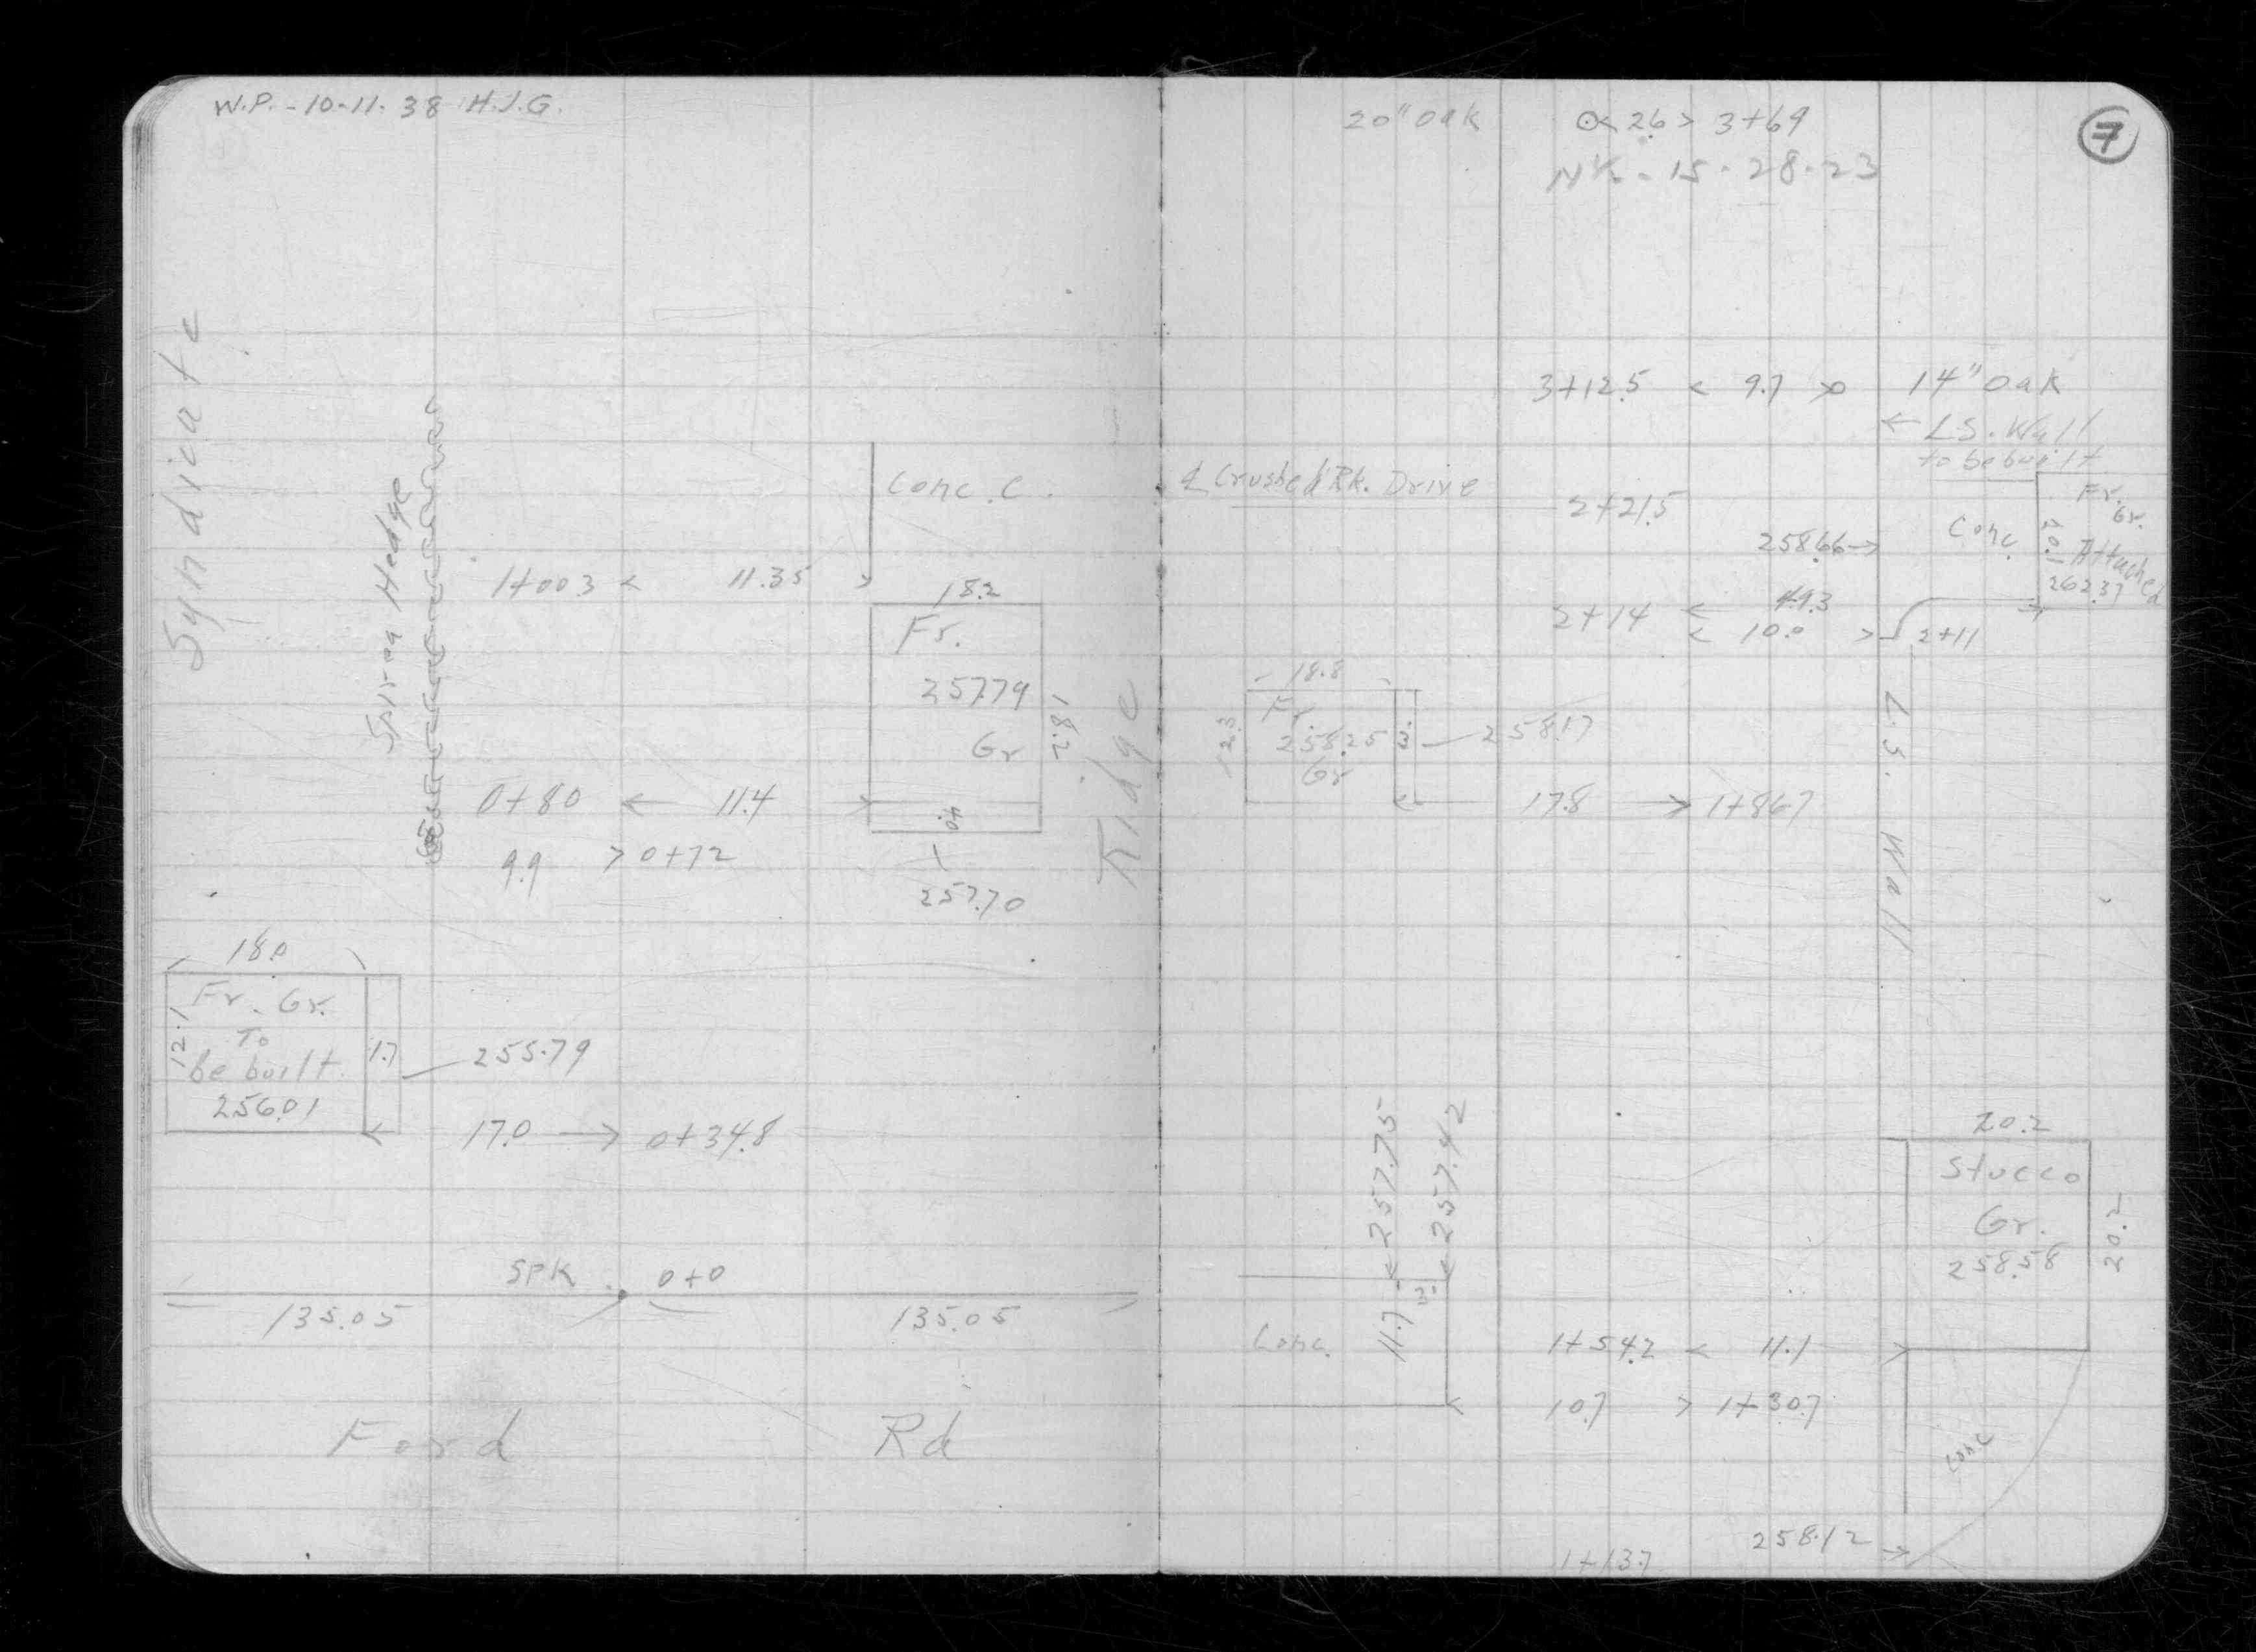 W.P. - 10-11-38 H.J.G.
Syndicate
Spirea Hedge
Conc. C.
1+00.3 < 11.35 >
18.2
Fr.
257.79
Gr
18.2
Ridge
0+80 <— 11.4 —>
4.0
9.9 > 0+72
257.70
18.0
Fr. Gr.
To
be built
256.01
12.1
1.7
255.79
<— 17.0 —> 0+34.8
SPK 0+0
135.05 135.05
Ford Rd
7
20" Oak ⊙< 26 > 3+69
NK. - 15-28-23
3+12.5 < 9.7 > 14" Oak
<— L.S. Wall
to be built
℄ Crushed Rk. Drive 2+21.5
Fr.
Gr.
Attached
262.37
20.1
Conc.
258.66 —>
2+14 <— 49.3 —>
< 10.0 > 2+11
18.8
Fr.
258.25
Gr
12.3
3.
258.17
<— 17.8 —> 1+86.7
L.S. Wall
<— 257.75
<— 257.42
11.7
3.
Conc.
20.2
Stucco
Gr.
258.58
20.2
1+54.2 < 11.1 —>
< 10.7 > 1+30.7
Conc
258.12 —>
1+13.7